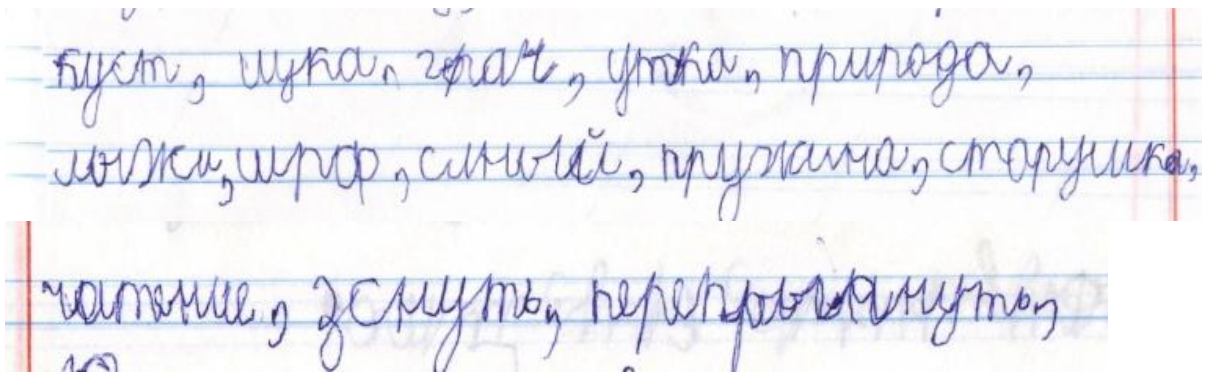 куст, щука, грач, утка, природа,
лыжи, шрф, синый, пружина, старушка,
чатение, зснуть, перепрыгануть,